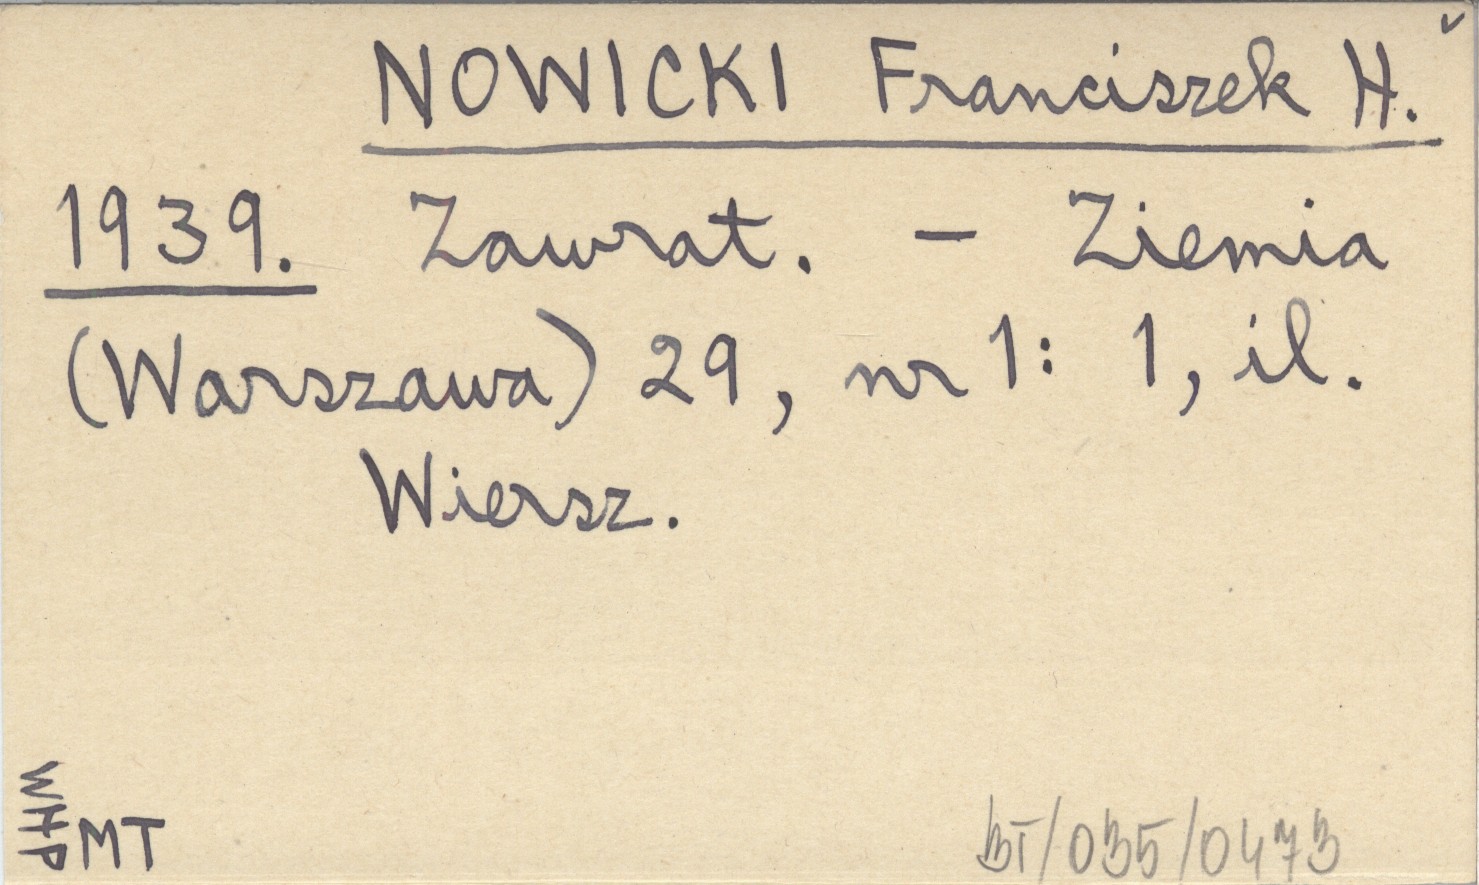 NOWICKI Franciszek H.
1939. Zawrat. - Ziemia
(Warszawa) 29, nr 1: 1, il.
Wiersz.
WHP
MT
BT/035/0473